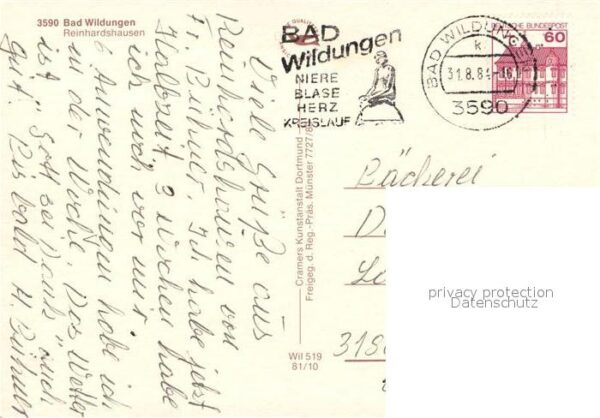 3590 Bad Wildungen
Reinhardshausen
Viele Grüße aus
Reinhardshausen von
Fr. Bühner. Ich habe jetzt
Halbzeit, 3 Wochen habe
ich noch vor mir
6 Anwendungen habe ich
in der Woche. Das Wetter
ist "Gott sei Dank" auch
gut. Bis bald H. Bühner
BAD
Wildungen
NIERE
BLASE
HERZ
KREISLAUF
BAD WILDUNGEN
k
31.8.84-16
3590
DEUTSCHE BUNDESPOST
60
Cramers Kunstanstalt Dortmund
Freigeg. d. Reg.-Präs. Münster 7727/8
Wil 519
81/10
Bäckerei
privacy protection
Datenschutz